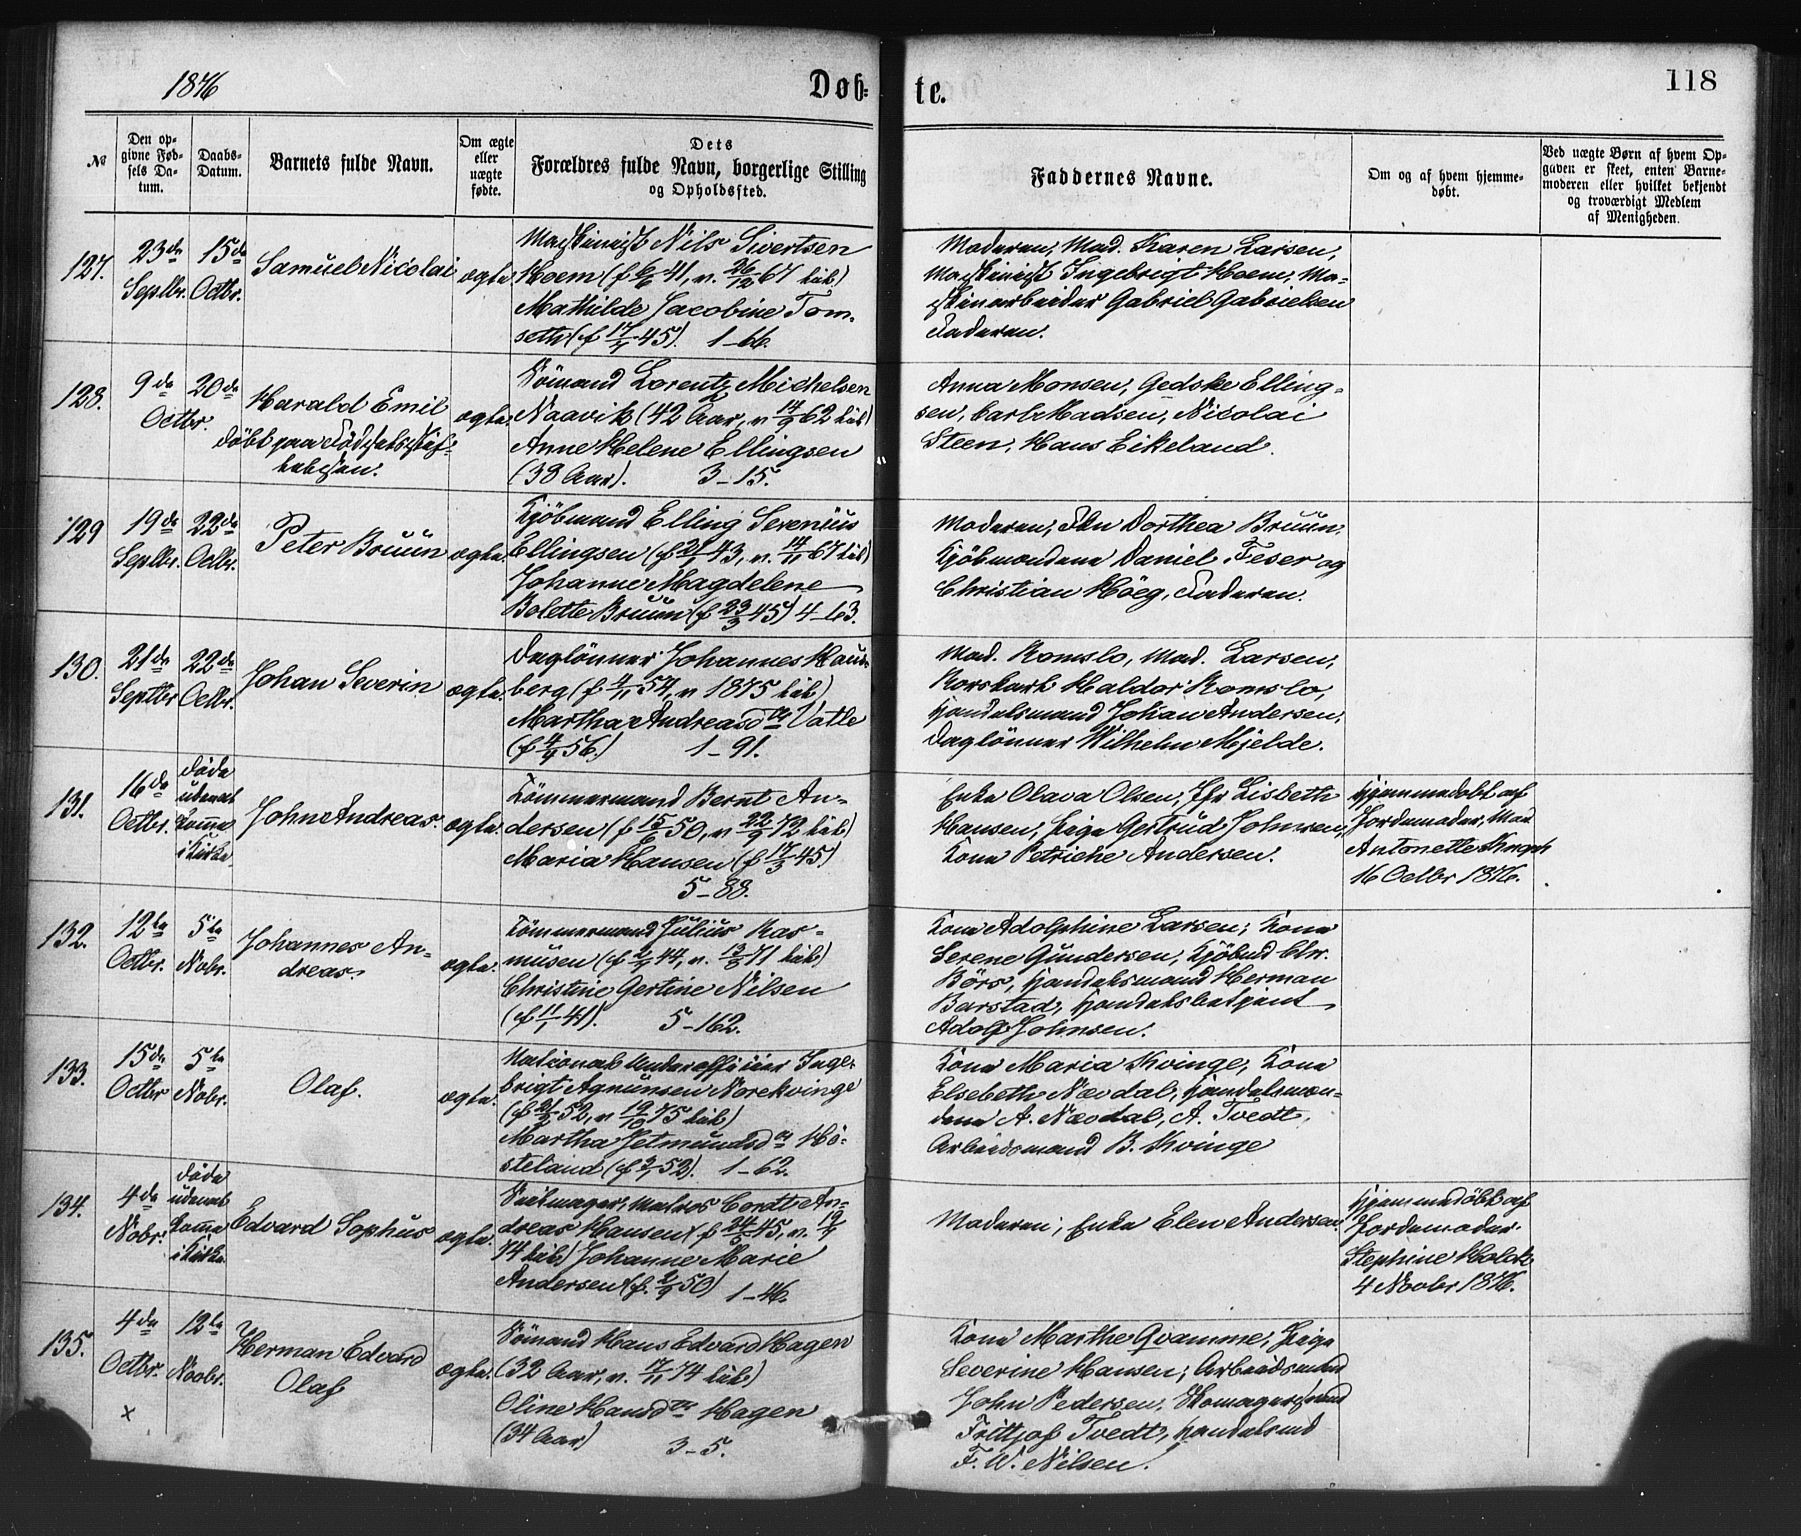 1876
Døb-
te.
118
№
Den op-
givne Fød-
sels Da-
tum.
Daabs-
Datum.
Barnets fulde Navn.
Om ægte
eller
uægte
fødte.
Dets
Forældres fulde Navn, borgerlige Stilling
og Opholdssted.
Faddernes Navne.
Om og af hvem hjemme-
døbt.
Ved uægte Børn af hvem Op-
gaven er skeet, enten Barne-
moderen eller hvilket bekjendt
og troværdigt Medlem
af Menigheden.
127.
23de
Septbr.
15de
Octbr.
Samuel Nicolai
ægte
Maskinist Nils Sivertsen
Hoem (f 6/6 41, v. 26/12 67 lib)
Mathilde Jacobine Tom-
seth (f 17/4 45). 1-66.
Moderen, Mad. Karen Larsen,
Maskinist Ingebrigt Hoem, Ma-
skinarbeider Gabriel Gabrielsen
Faderen.
128.
9de
Octbr.
20de
Harald Emil
døbt paa Fødselsstif-
telsen.
ægte.
Sömand Lorentz Michelsen
Naavik (42 Aar, v 14/9 62 lib)
Anne Helene Ellingsen
(38 Aar). 3-15.
Anna Monsen, Gedske Elling-
sen, Carl Madsen, Nicolai
Steen, Hans Eikeland.
129
19de
Septbr.
22de
Octbr.
Peter Bruun
ægte.
Kjöbmand Elling Severius
Ellingsen (f 21/1 43, v. 14/11 67 lib)
Johanne Magdelene
Bolette Bruun (f 23/3 45) 4-63.
Moderen, Fkn Dorthea Bruun,
Kjöbmændene Daniel Feser og
Christian Höeg, Faderen.
130.
21de
Septbr
22de
Octbr.
Johan Severin
ægte.
Daglönner Johannes Haus-
berg (f 4/11 54, v 1875 lib)
Martha Andreasdr Vatle
(f 4/9 56.) 1-91.
Mad. Romslo, Mad. Larsen,
Korskarl Haldor Romslo,
Handelsmand Johan Andersen,
Daglönner Wilhelm Mjelde.
131.
16de
Octbr.
døde
uden at
komme
i Kirke.
John Andreas.
ægte.
Tömmermand Bernt An-
dersen (f 15/6 50, v 22/9 72 lib)
Maria Hansen (f 17/3 45)
5-88.
Enke Olava Olsen, Jfr Lisbeth
Hansen, Pige Gertrud Johnsen,
Kone Petriche Andersen.
Hjemmedøbt af
Jordemoder, Mad
Antonette
16 Octbr 1876.
132.
12te
Octbr.
5te
Nobr.
Johannes An-
dreas
ægte.
Tömmermand Julius Ras-
musen (f 2/9 44, v. 13/8 71 lib)
Christine Gertine Nilsen
(f 11/1 41). 5-162.
Kone Adolphine Larsen, Kone
Serene Gundersen, Kjöbmd Chr.
Börs, Handelsmand Herman
Barstad, Handelsbetjent
Adolf Johnsen.
133.
15de
Octbr
5te
Nobr.
Olaf.
ægte.
National Underofficier Inge-
brigt Agmunsen Norekvinge
(f 21/2 52, v 19/10 75 lib)
Martha Jetmundsdr Hö-
steland (f 3/1 52). 1-62.
Kone Maria Kvinge, Kone
Elsebeth Nævdal, Handelsmæn-
dene A. Nævdal, A. Tvedt,
Arbeidsmand B. Kvinge
134.
4de
Nobr.
døde
uden at
komme
i Kirke.
Edvard Sophus
ægte.
Seilmager, Matros Cordt An-
dreas Hansen (f 24/5 45, v. 19/4
74 lib) Johanne Marie
Andersen (f. 2/9 50) 1-46.
Moderen, Enke Elen Andersen.
Hjemmedöbt af
Jordemoder
Stephine Holck
4 Novbr 1876.
135.
4de
Octbr.
x
12te
Novbr.
Herman Edvard
Olaf
ægte.
Sömand Hans Edvard Hagen
(32 Aar, v. 17/11 74 lib)
Oline Hansdr Hagen
(34 Aar) 3-5.
Kone Marthe Qvamme, Pige
Severine Hansen, Arbeidsmand
John Pedersen, Skomagersvend
Frittjof Tvedt, Handelsmd
F. W. Nilsen.